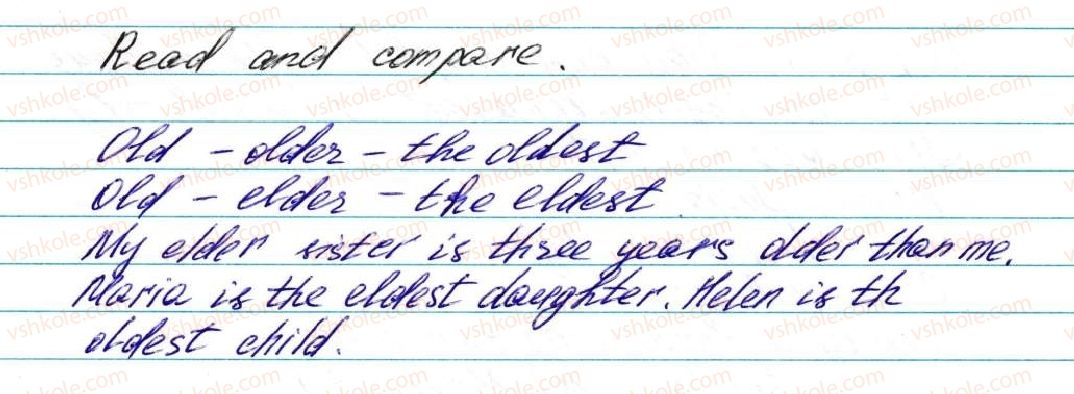 Read and compare.
Old – older – the oldest
Old – elder – the eldest
My elder sister is three years older than me.
Maria is the eldest daughter. Helen is th
oldest child.